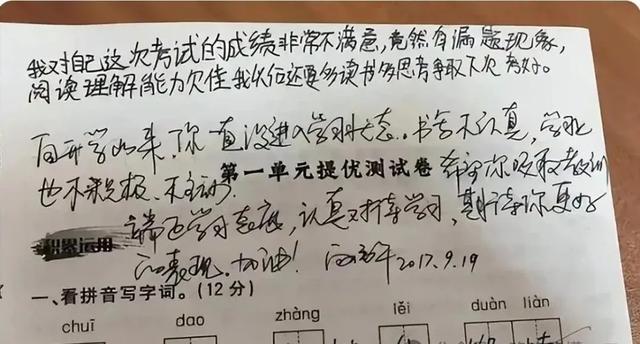 我对自己这次考试的成绩非常不满意,竟然有漏题现象,
阅读理解能力欠佳我以后还要多读书多思考争取下次考好。
自开学以来,你一直没进入学习状态。书写不认真,学习
也不积极、不主动。
第一单元提优测试卷
希望你吸取教训
端正学习态度,认真对待学习,期待你更好
的表现。加油!
2017.9.19
积累运用
一、看拼音写字词。(12分)
chuī dao zhàng lěi duàn liàn